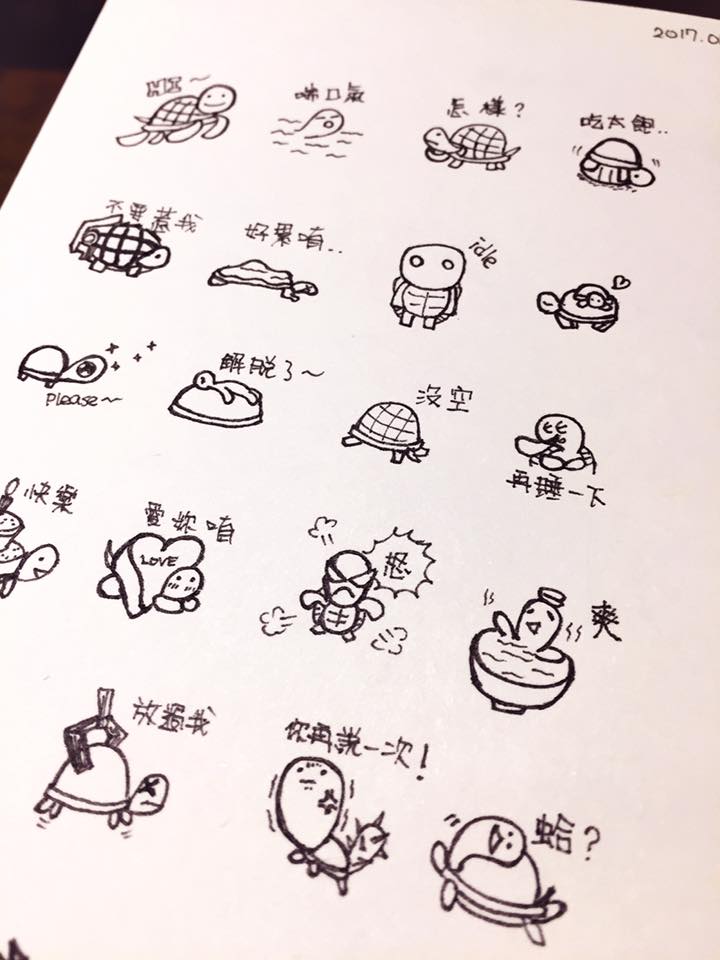 2017.0
HI～
喘口氣
怎樣？
吃太飽..
不要惹我
好累唷..
idle
Please～
解脫了～
沒空
再睡一下
快樂
愛妳唷
LOVE
怒
爽
放過我
你再說一次！
蛤？